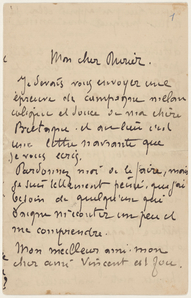 1
Mon cher Aurier.
Je devais vous envoyer une
épreuve de campagne mélan
colique et douce de ma chère
Bretagne et au lieu c'est
une lettre navrante que
je vous écris.
Pardonnez moi de la faire, mais
j'ai tellement peine, que j'ai
besoin de quelqu'un qui
daigne m'écouter un peu et
me comprendre.
Mon meilleur ami mon
cher ami Vincent est fou.